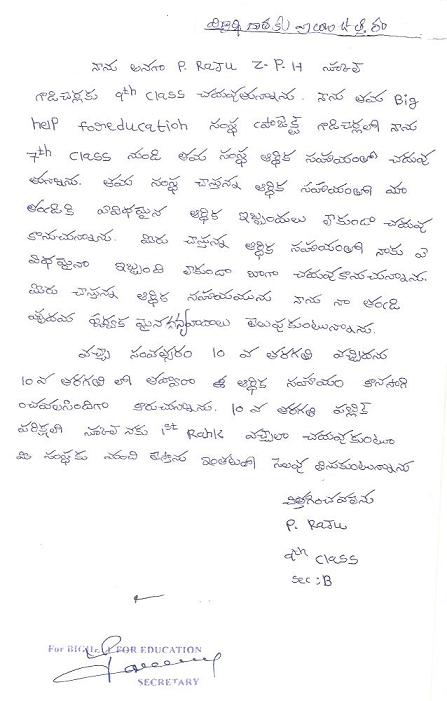 నాను అనగా P. RAJU Z-P.H స్కూల్
గాడిచర్లకు 9th class చదువుతున్నాను. నాను తమ Big
help foreducation సంస్థ ప్రోజెక్ట్ గాడిచర్లలో నాను
7th class నుండి తమ సంస్థ ఆర్థిక సహాయంతో చదువు
తున్నాను. తమ సంస్థ చేస్తున్న ఆర్థిక సహాయంతో మా
తండ్రికి ఏవిధమైన ఆర్థిక ఇబ్బందులు లేకుండా చదువు
కొనుచున్నాను. మీరు చేస్తున్న ఆర్థిక సహాయంతో నాకు ఏ
విధమైనా ఇబ్బంది లేకుండా బాగా చదువుకొనుచున్నాను.
మీరు చేస్తున్న ఆర్థిక సహాయమును నాను నా తండ్రి
హృదయ పూర్వక మైన ధన్యవాదాలు తెలుపుకుంటున్నాను.
వచ్చే సంవత్సరం 10 వ తరగతి
10 వ తరగతి లో ఈ ఆర్థిక సహాయం కొనసాగి
ంచవలసిందిగా కోరుచున్నాను. 10 వ తరగతి పబ్లిక్
పరీక్షలో స్కూల్ నకు 1st Rank వచ్చేలా చదువుకుంటూ
మీ సంస్థకు మంచి తెస్తాను ఇంతటితో సెలవు తీసుకుంటున్నాను
చిత్తగించవలెను
P. RAJU
9th class
sec: B
For BIG HELP FOR EDUCATION
SECRETARY